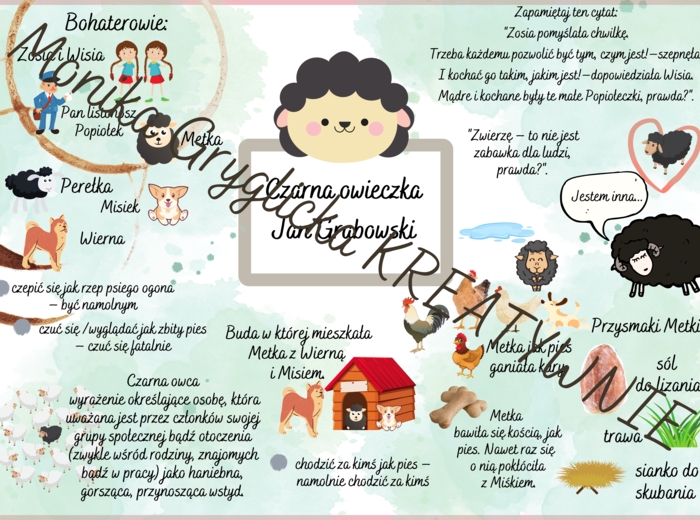 Bohaterowie:
Zosia i Wisia
Pan listonosz
Popiołek
Metka
Perełka
Misiek
Wierna
czepić się jak rzep psiego ogona
– być namolnym
czuć się /wyglądać jak zbity pies
– czuć się fatalnie
Czarna owca
wyrażenie określające osobę, która
uważana jest przez członków swojej
grupy społecznej bądź otoczenia
(zwykle wśród rodziny, znajomych
bądź w pracy) jako haniebna,
gorsząca, przynosząca wstyd.
Czarna owieczka
Jan Grabowski
Buda w której mieszkała
Metka z Wierną
i Misiem.
chodzić za kimś jak pies –
namolnie chodzić za kimś
Zapamiętaj ten cytat:
"Zosia pomyślała chwilkę.
Trzeba każdemu pozwolić być tym, czym jest!–szepnęła.
I kochać go takim, jakim jest!–dopowiedziała Wisia.
Mądre i kochane były te małe Popiołeczki, prawda?".
"Zwierzę – to nie jest
zabawka dla ludzi,
prawda?".
Jestem inna...
Metka jak pies
ganiała kury
Metka
bawiła się kością, jak
pies. Nawet raz się
o nią pokłóciła
z Miśkiem.
Przysmaki Metki
sól
do lizania
trawa
sianko do
skubania
Monika Gryglicka KREATYWNIE